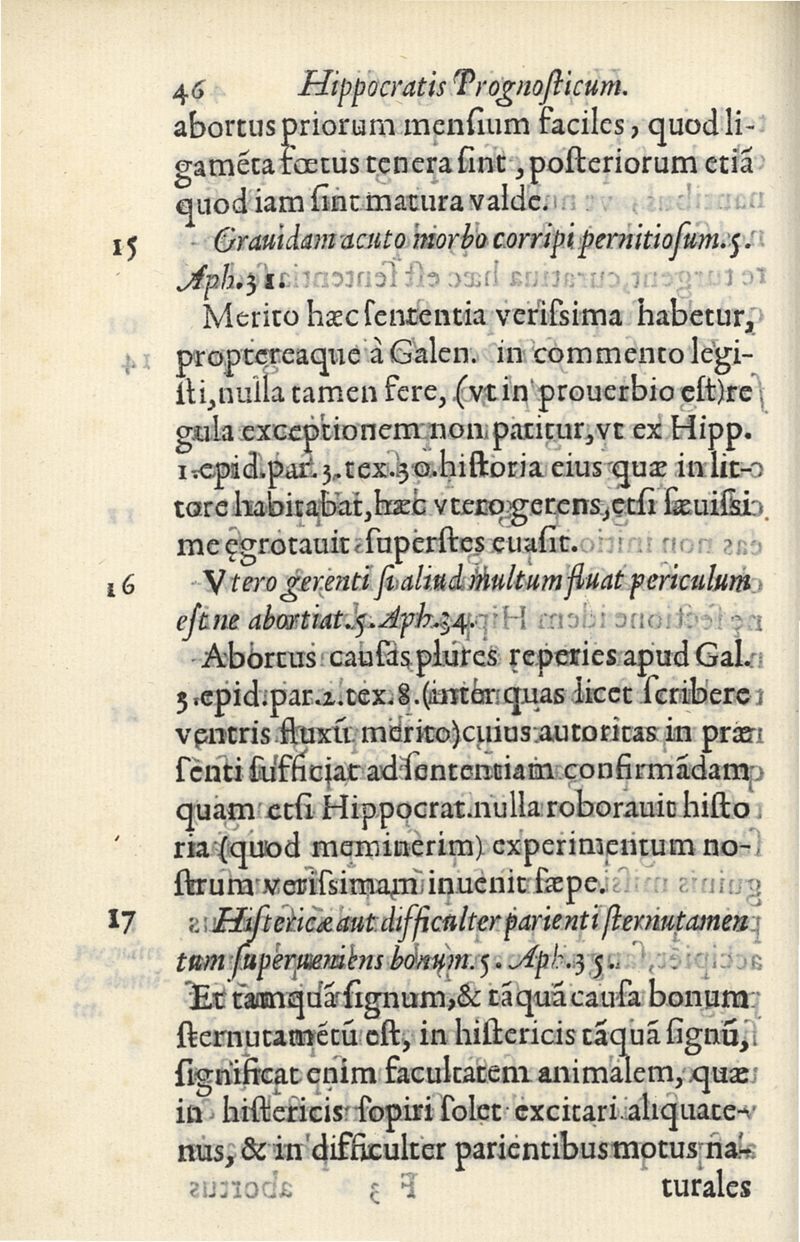 46 Hippocratis Prognosticum.
abortus priorum mensium faciles, quod li-
gamēta fœtus tenera sint, posteriorum etiā
quod iam sint matura valde.
15 Grauidam acuto morbo corripi pernitiosum. 5.
Aph. 31.
Merito hæc sententia verissima habetur,
proptereaque à Galen. in commento legi-
sti, nulla tamen fere, (vt in prouerbio est) re
gula exceptionem non patitur, vt ex Hipp.
1. epid. par. 3. tex. 30. historia eius quæ in lit-
tore habitabat, hæc vtero gerens, etsi sæuissi
me ęgrotauit superstes euasit.
16 Vtero gerenti si aliud multum fluat periculum
est ne abortiat. 5. Aph. 34.
Abortus causas plures reperies apud Gal.
3. epid. par. 2. tex. 8. (inter quas licet scribere
ventris fluxū merito) cuius autoritas in præ
senti sufficiat ad sententiam confirmādam
quam etsi Hippocrat. nulla roborauit histo
ria (quod meminerim) experimentum no-
strum verissimam inuenit sæpe.
17 Histericæ aut difficulter parienti sternutamen
tum superueniens bonum. 5. Aph. 35.
Et tamquā signum, & tāquā causa bonum
sternutamētū est, in histericis tāquā signū,
significat enim facultatem animalem, quæ
in histericis sopiri solet excitari aliquate-
nus, & in difficulter parientibus motus na-
turales